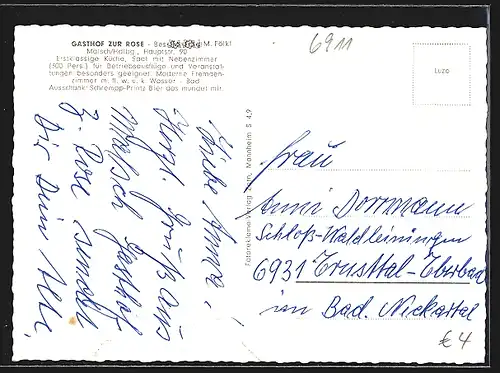 GASTHOF ZUR ROSE - Bes. M. Fölkl
Malsch/Hdlbg., Hauptstr. 90
Erstklassige Küche, Saal mit Nebenzimmer
(500 Pers.) für Betriebsausflüge und Veranstal-
tungen besonders geeignet. Moderne Fremden-
zimmer m. fl. w. u. k. Wasser - Bad
Ausschank: Schrempp-Printz Bier das mundet mir.
Liebe Anna,
Herzl. Grüße aus
Malsch Gasthof
z. Rose sendet
Dir Dein
Mannheim S 49
6911
Frau
Anni Dornmann
Schloß-Waldleiningen
6931 Ernsttal-Eberbad
im Bad.
€ 4